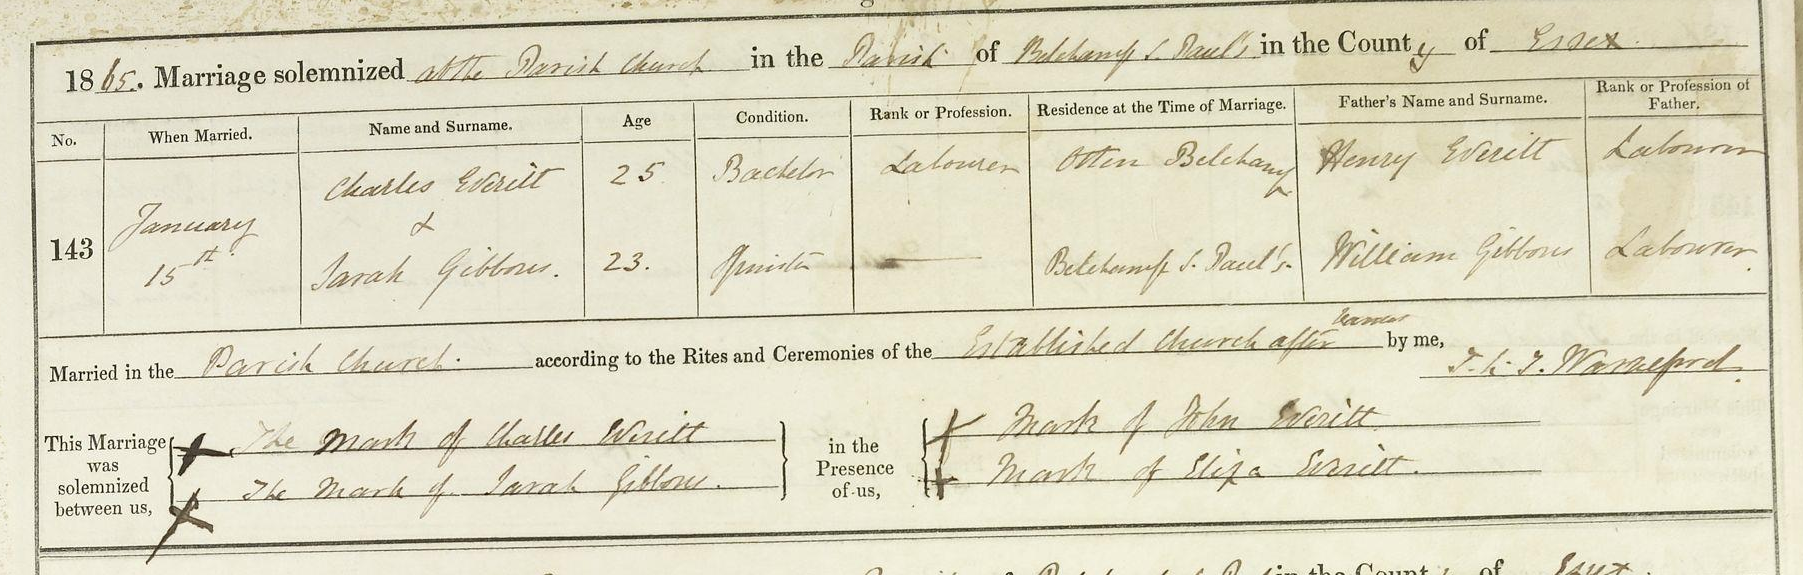 1865. Marriage solemnized at the Parish Church in the Parish of Belchamp S. Paul's in the County of Essex.
No. When Married. Name and Surname. Age Condition. Rank or Profession. Residence at the Time of Marriage. Father's Name and Surname. Rank or Profession of Father.
143 January 15th Charles Everitt 25 Bachelor Labourer Otten Belchamp Henry Everitt Labourer
&
Sarah Gibbons. 23. Spinster — Belchamp S. Paul's. William Gibbons Labourer.
Married in the Parish Church. according to the Rites and Ceremonies of the Established Church after Banns by me, Warneford.
This Marriage was solemnized between us, X The Mark of Charles Everitt in the Presence of us, X Mark of John Everitt
X The Mark of Sarah Gibbons. X Mark of Eliza Everitt.
in the County of Essex